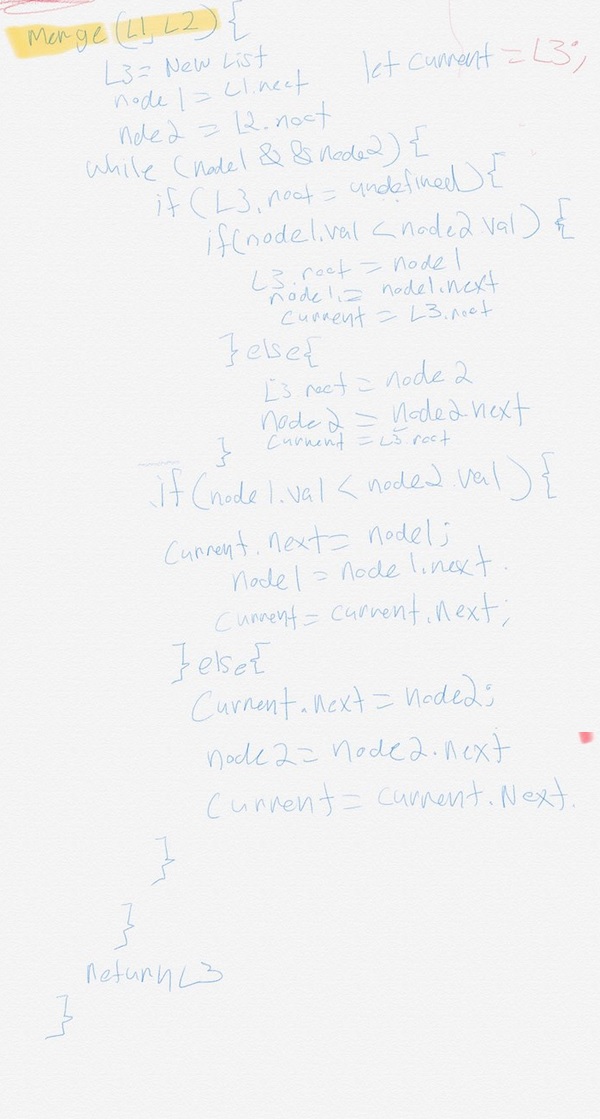 Merge (L1, L2) {
L3 = New List
let current = L3;
node1 = L1.root
node2 = L2.root
while (node1 && node2) {
if (L3.root = undefined) {
if(node1.val < node2.val) {
L3.root = node1
node1 = node1.next
current = L3.root
} else {
L3.root = node2
node2 = node2.next
current = L3.root
}
if (node1.val < node2.val) {
current.next = node1;
node1 = node1.next.
current = current.next;
} else {
Current.next = node2;
node2 = node2.next
Current = current.Next.
}
}
return L3
}